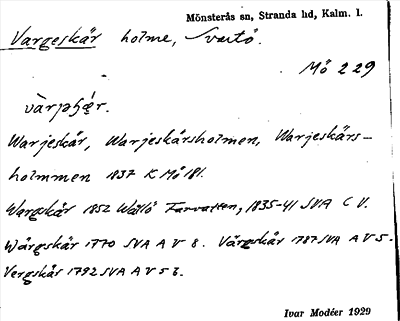 Mönsterås sn, Stranda hd, Kalm. l.
Vargeskär holme, Svartö.
Mö 229
Warjeskär, Warjeskärsholmen, Warjeskärs-
holmmen 1837 K Mö 181.
Wargskär 1852 Wållö Farvatten, 1835-41 SVA C V.
Wärgskär 1770 SVA A V 8. Värgskär 1787 SVA A V 5.
Vergskär 1792 SVA A V 5 b.
Ivar Modéer 1929